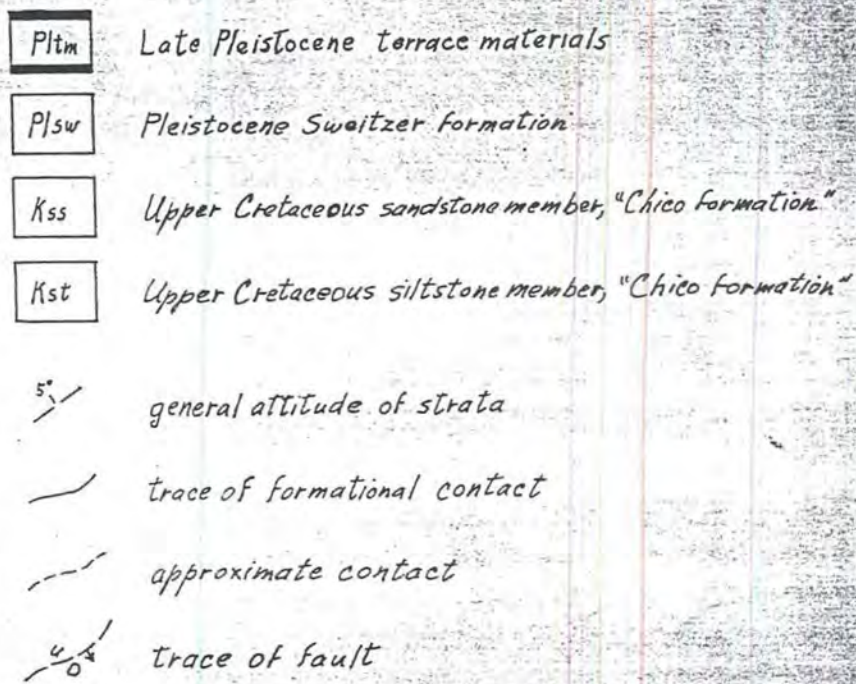 Pltm Late Pleistocene terrace materials
Plsw Pleistocene Sweitzer formation
Kss Upper Cretaceous sandstone member, "Chico formation"
Kst Upper Cretaceous siltstone member, "Chico formation"
5° general attitude of strata
trace of formational contact
approximate contact
U D trace of fault